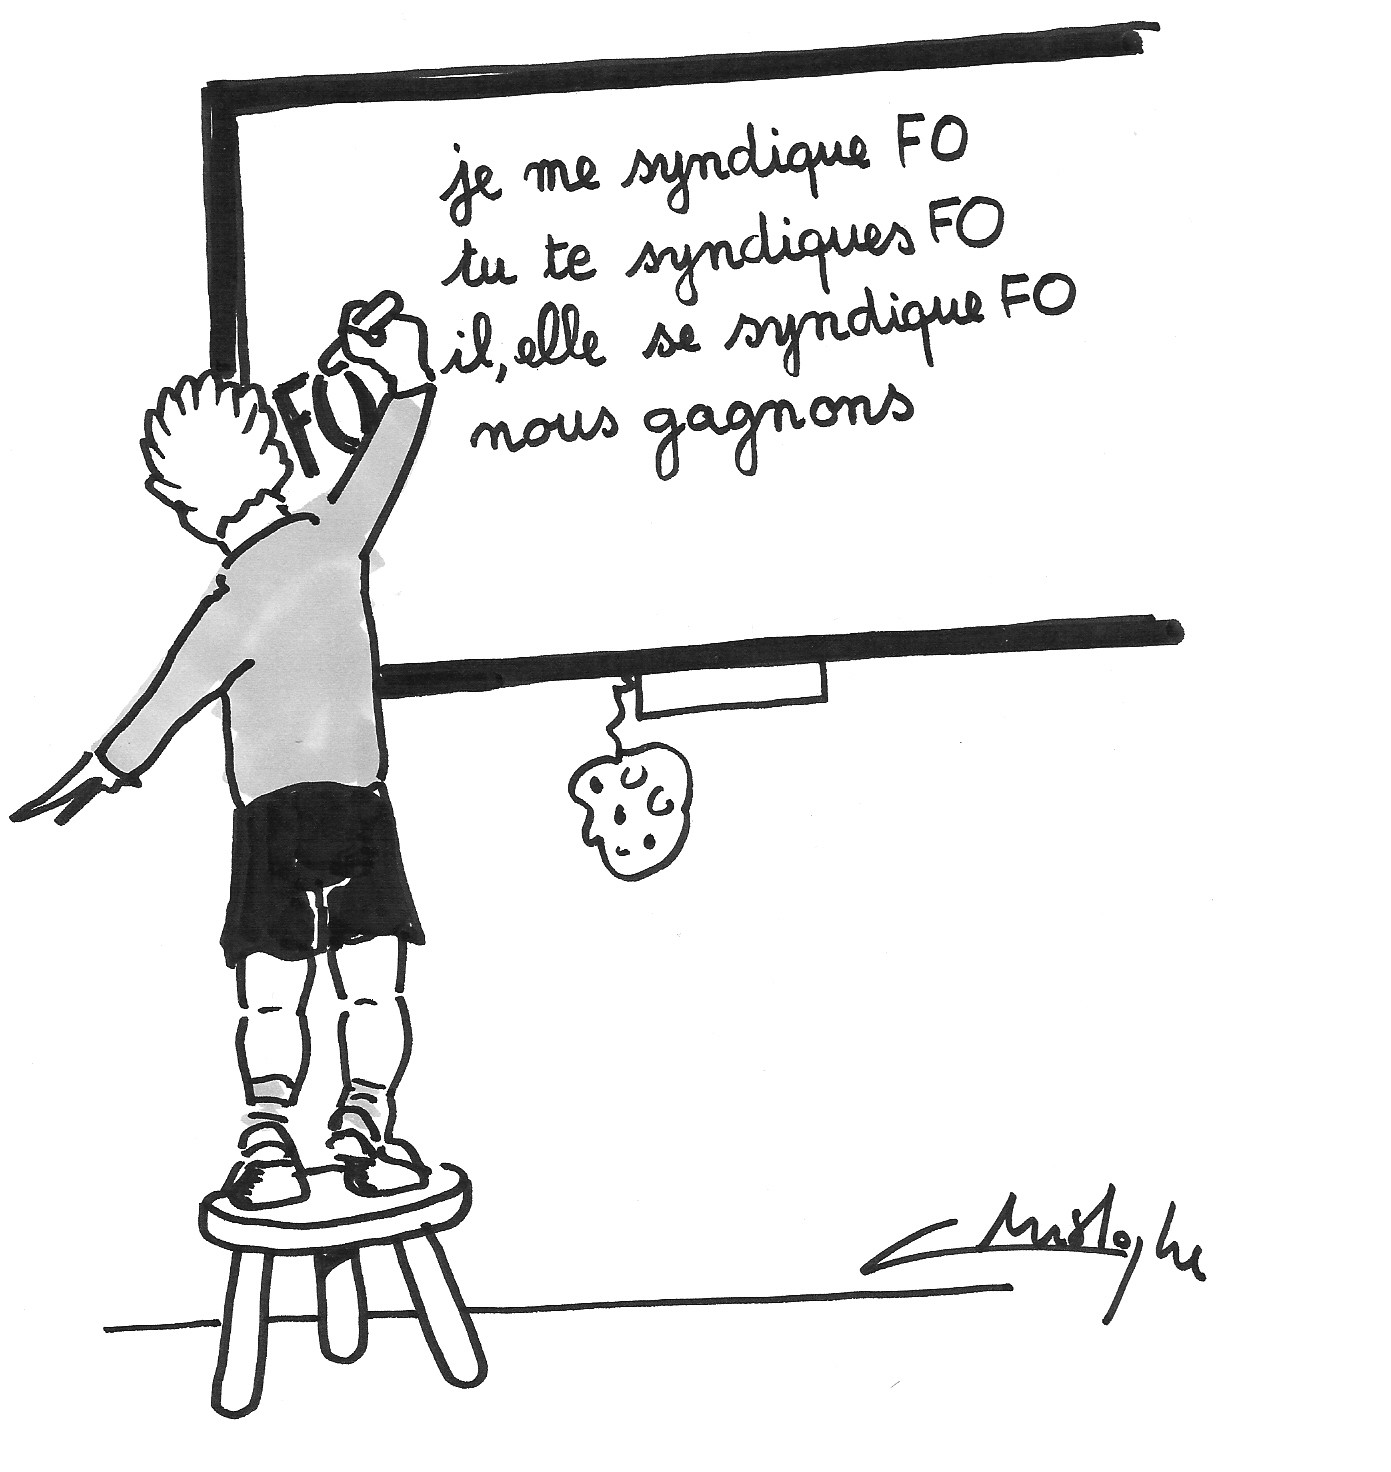 je me syndique FO
tu te syndiques FO
il, elle se syndique FO
nous gagnons
FO